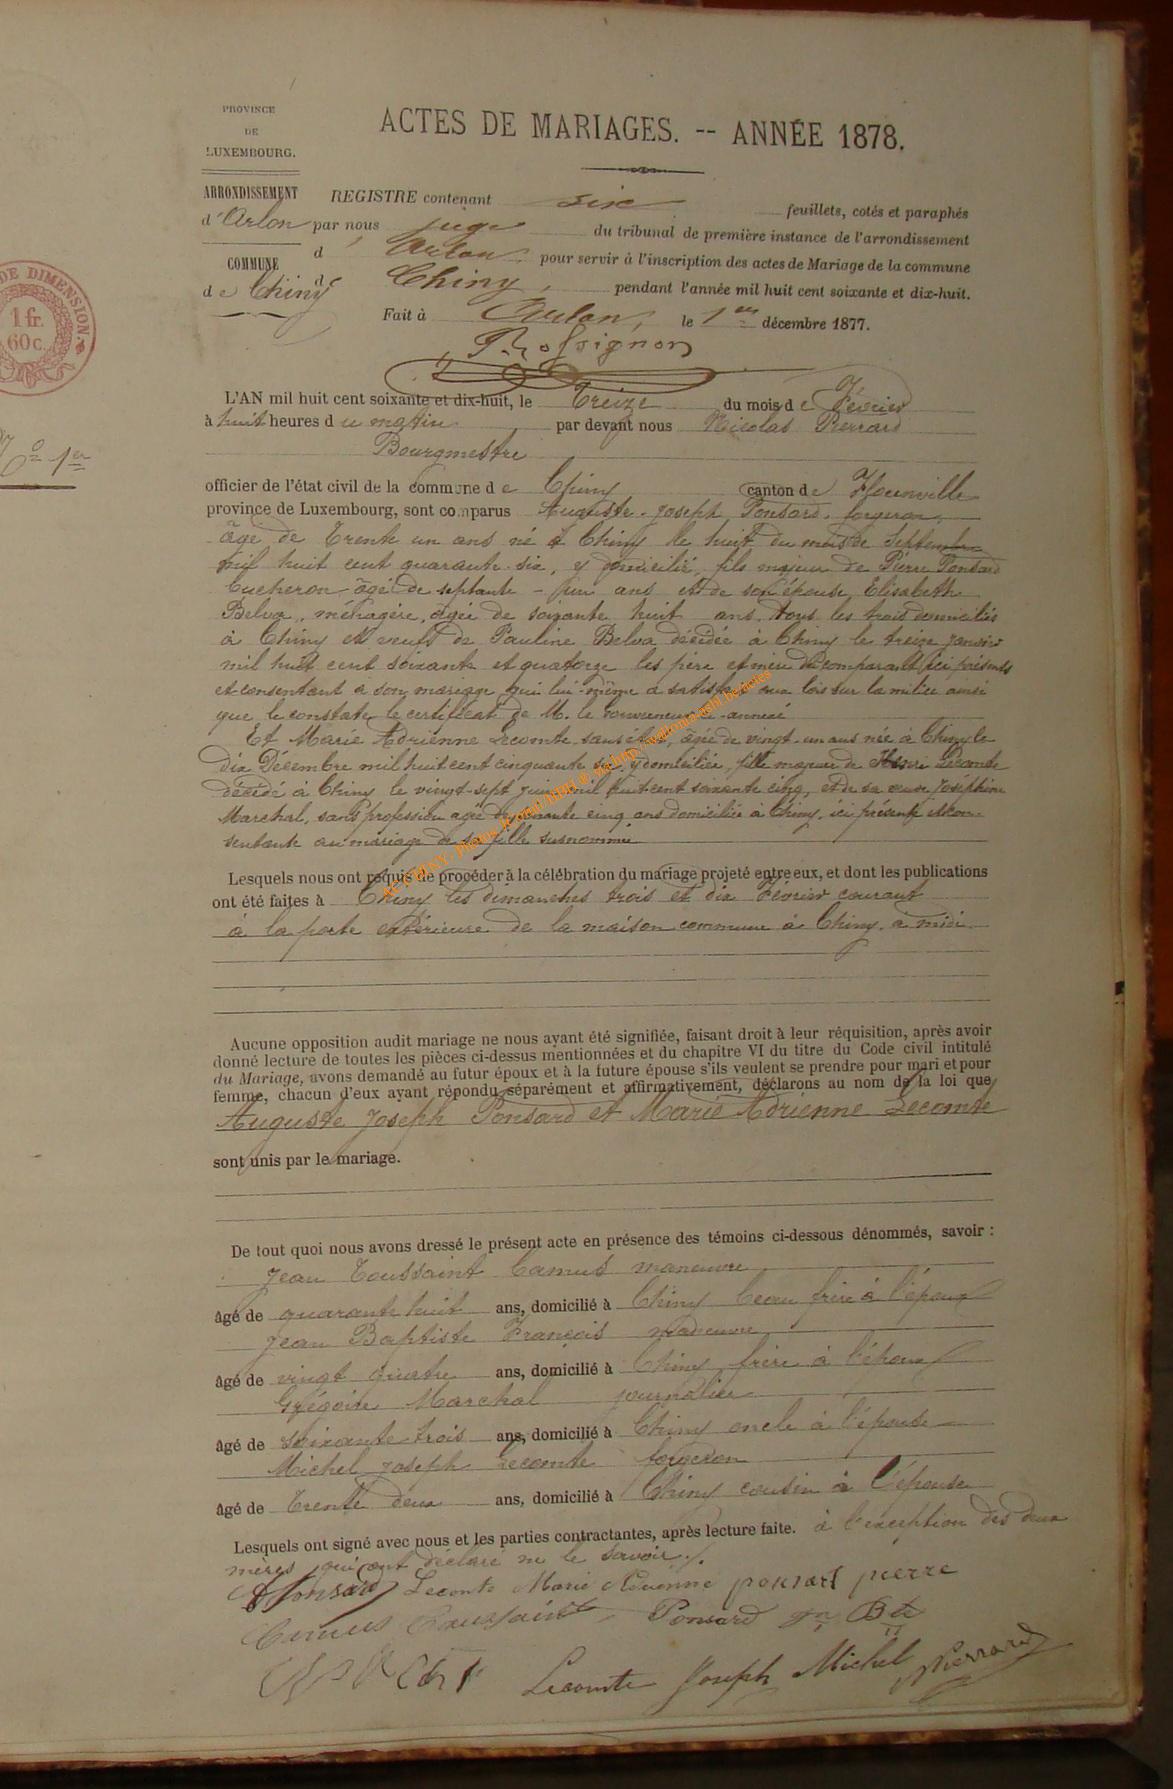 PROVINCE
DE
LUXEMBOURG.
ACTES DE MARIAGES. -- ANNÉE 1878.
ARRONDISSEMENT
d'Arlon
COMMUNE
de Chiny
REGISTRE contenant six feuillets, cotés et paraphés
par nous juge du tribunal de première instance de l'arrondissement
d'Arlon, pour servir à l'inscription des actes de Mariage de la commune
de Chiny, pendant l'année mil huit cent soixante et dix-huit.
Fait à Arlon, le 1er décembre 1877.
DE DIMENSION.
1 fr.
60 c.
N° 1er
L'AN mil huit cent soixante et dix-huit, le Treize du mois de Février
à huit heures du matin par devant nous Nicolas Pierrard
Bourgmestre
officier de l'état civil de la commune de Chiny canton de Florenville
province de Luxembourg, sont comparus Auguste Joseph Ponsard, forgeron,
âgé de Trente un ans né à Chiny le huit du mois de Septembre
mil huit cent quarante six, y domicilié, fils majeur de Pierre Ponsard
bucheron âgé de septante - un ans et de son épouse Elisabeth
Belva, ménagère, âgée de soixante huit ans, tous les trois domiciliés
à Chiny et veuf de Pauline Belva décédée à Chiny le treize janvier
mil huit cent soixante et quatorze les père et mère du comparant ici présents
et consentant à son mariage qui lui-même a satisfait aux lois sur la milice ainsi
que le constate le certificat de M. le Gouverneur ci-annexé
Et Marie Adrienne Lecomte sans état, âgée de vingt-un ans née à Chiny le
dix Décembre mil huit cent cinquante six, y domiciliée, fille majeure de Henri Lecomte
décédé à Chiny le vingt-sept juin mil huit cent soixante cinq, et de sa veuve Joséphine
Marchal, sans profession âgée de cinq ans domiciliée à Chiny, ici présente et con-
sentante au mariage de sa fille susnommée
Lesquels nous ont requis de procéder à la célébration du mariage projeté entre eux, et dont les publications
ont été faites à Chiny les dimanches trois et dix Février courant
à la porte extérieure de la maison commune à Chiny, à midi
Aucune opposition audit mariage ne nous ayant été signifiée, faisant droit à leur réquisition, après avoir
donné lecture de toutes les pièces ci-dessus mentionnées et du chapitre VI du titre du Code civil intitulé
du Mariage, avons demandé au futur époux et à la future épouse s'ils veulent se prendre pour mari et pour
femme, chacun d'eux ayant répondu séparément et affirmativement, déclarons au nom de la loi que
Auguste Joseph Ponsard et Marie Adrienne Lecomte
sont unis par le mariage.
De tout quoi nous avons dressé le présent acte en présence des témoins ci-dessous dénommés, savoir :
Jean Toussaint Camus manœuvre
âgé de quarante huit ans, domicilié à Chiny beau frère à l'époux
Jean Baptiste François manœuvre
âgé de vingt quatre ans, domicilié à Chiny frère à l'époux
Grégoire Marchal journalier
âgé de soixante trois ans, domicilié à Chiny oncle à l'épouse
Michel Joseph Lecomte forgeron
âgé de Trente deux ans, domicilié à Chiny cousin à l'épouse
Lesquels ont signé avec nous et les parties contractantes, après lecture faite. à l'exception des deux
mères qui ont déclaré ne le savoir./.
A Ponsard Lecomte Marie Adrienne ponsart pierre
Camus Toussaint Ponsard Jn Bte
Lecomte Joseph Michel NPierrard